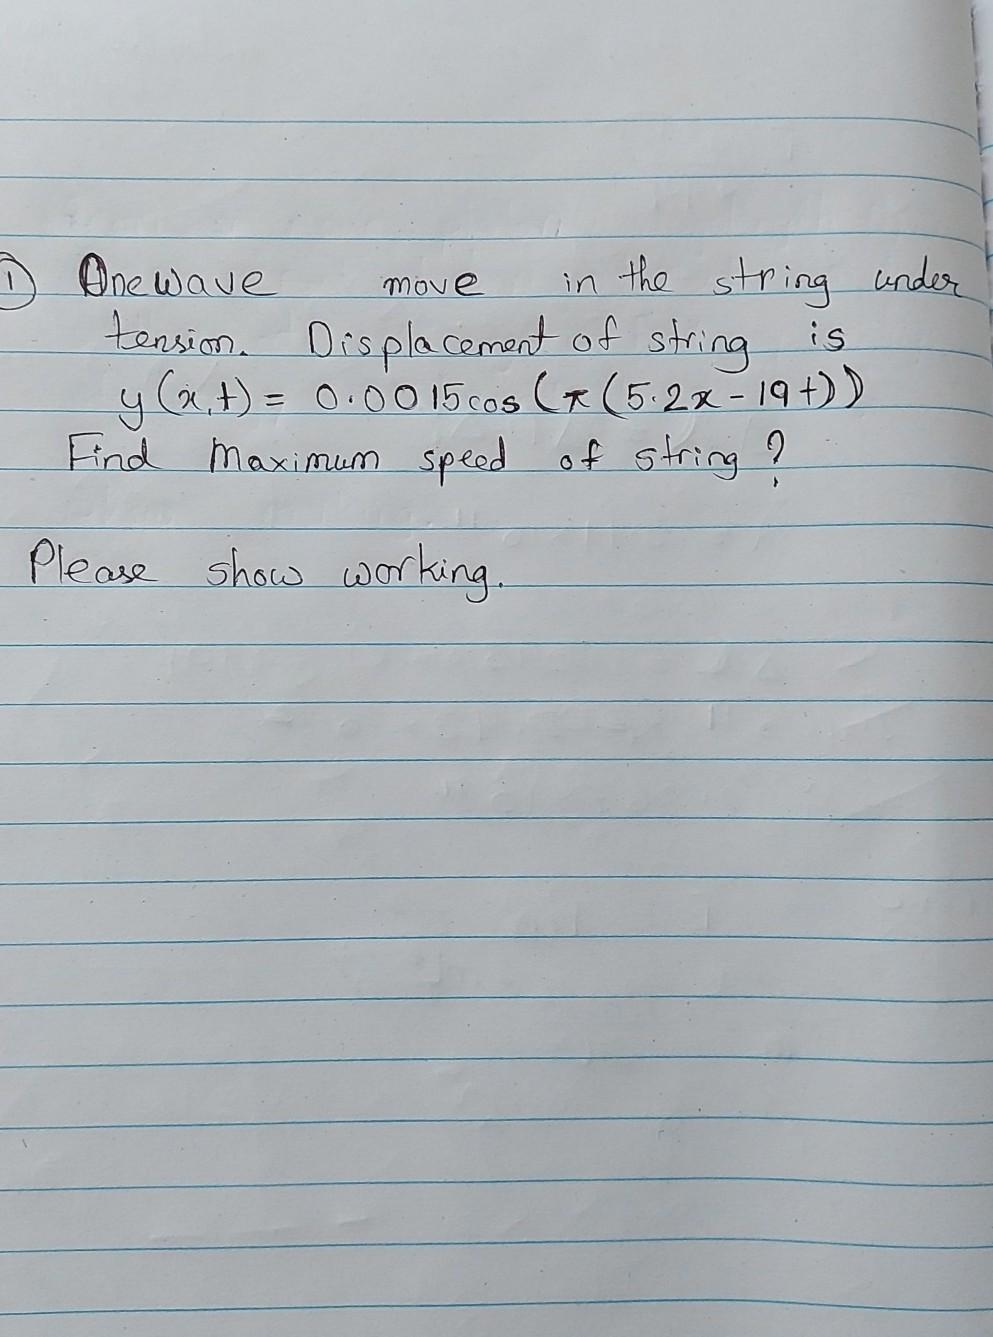 ① One wave move in the string under
tension. Displacement of string is
y(x,t) = 0.0015cos(π(5.2x-19t))
Find Maximum speed of string?
Please show working.